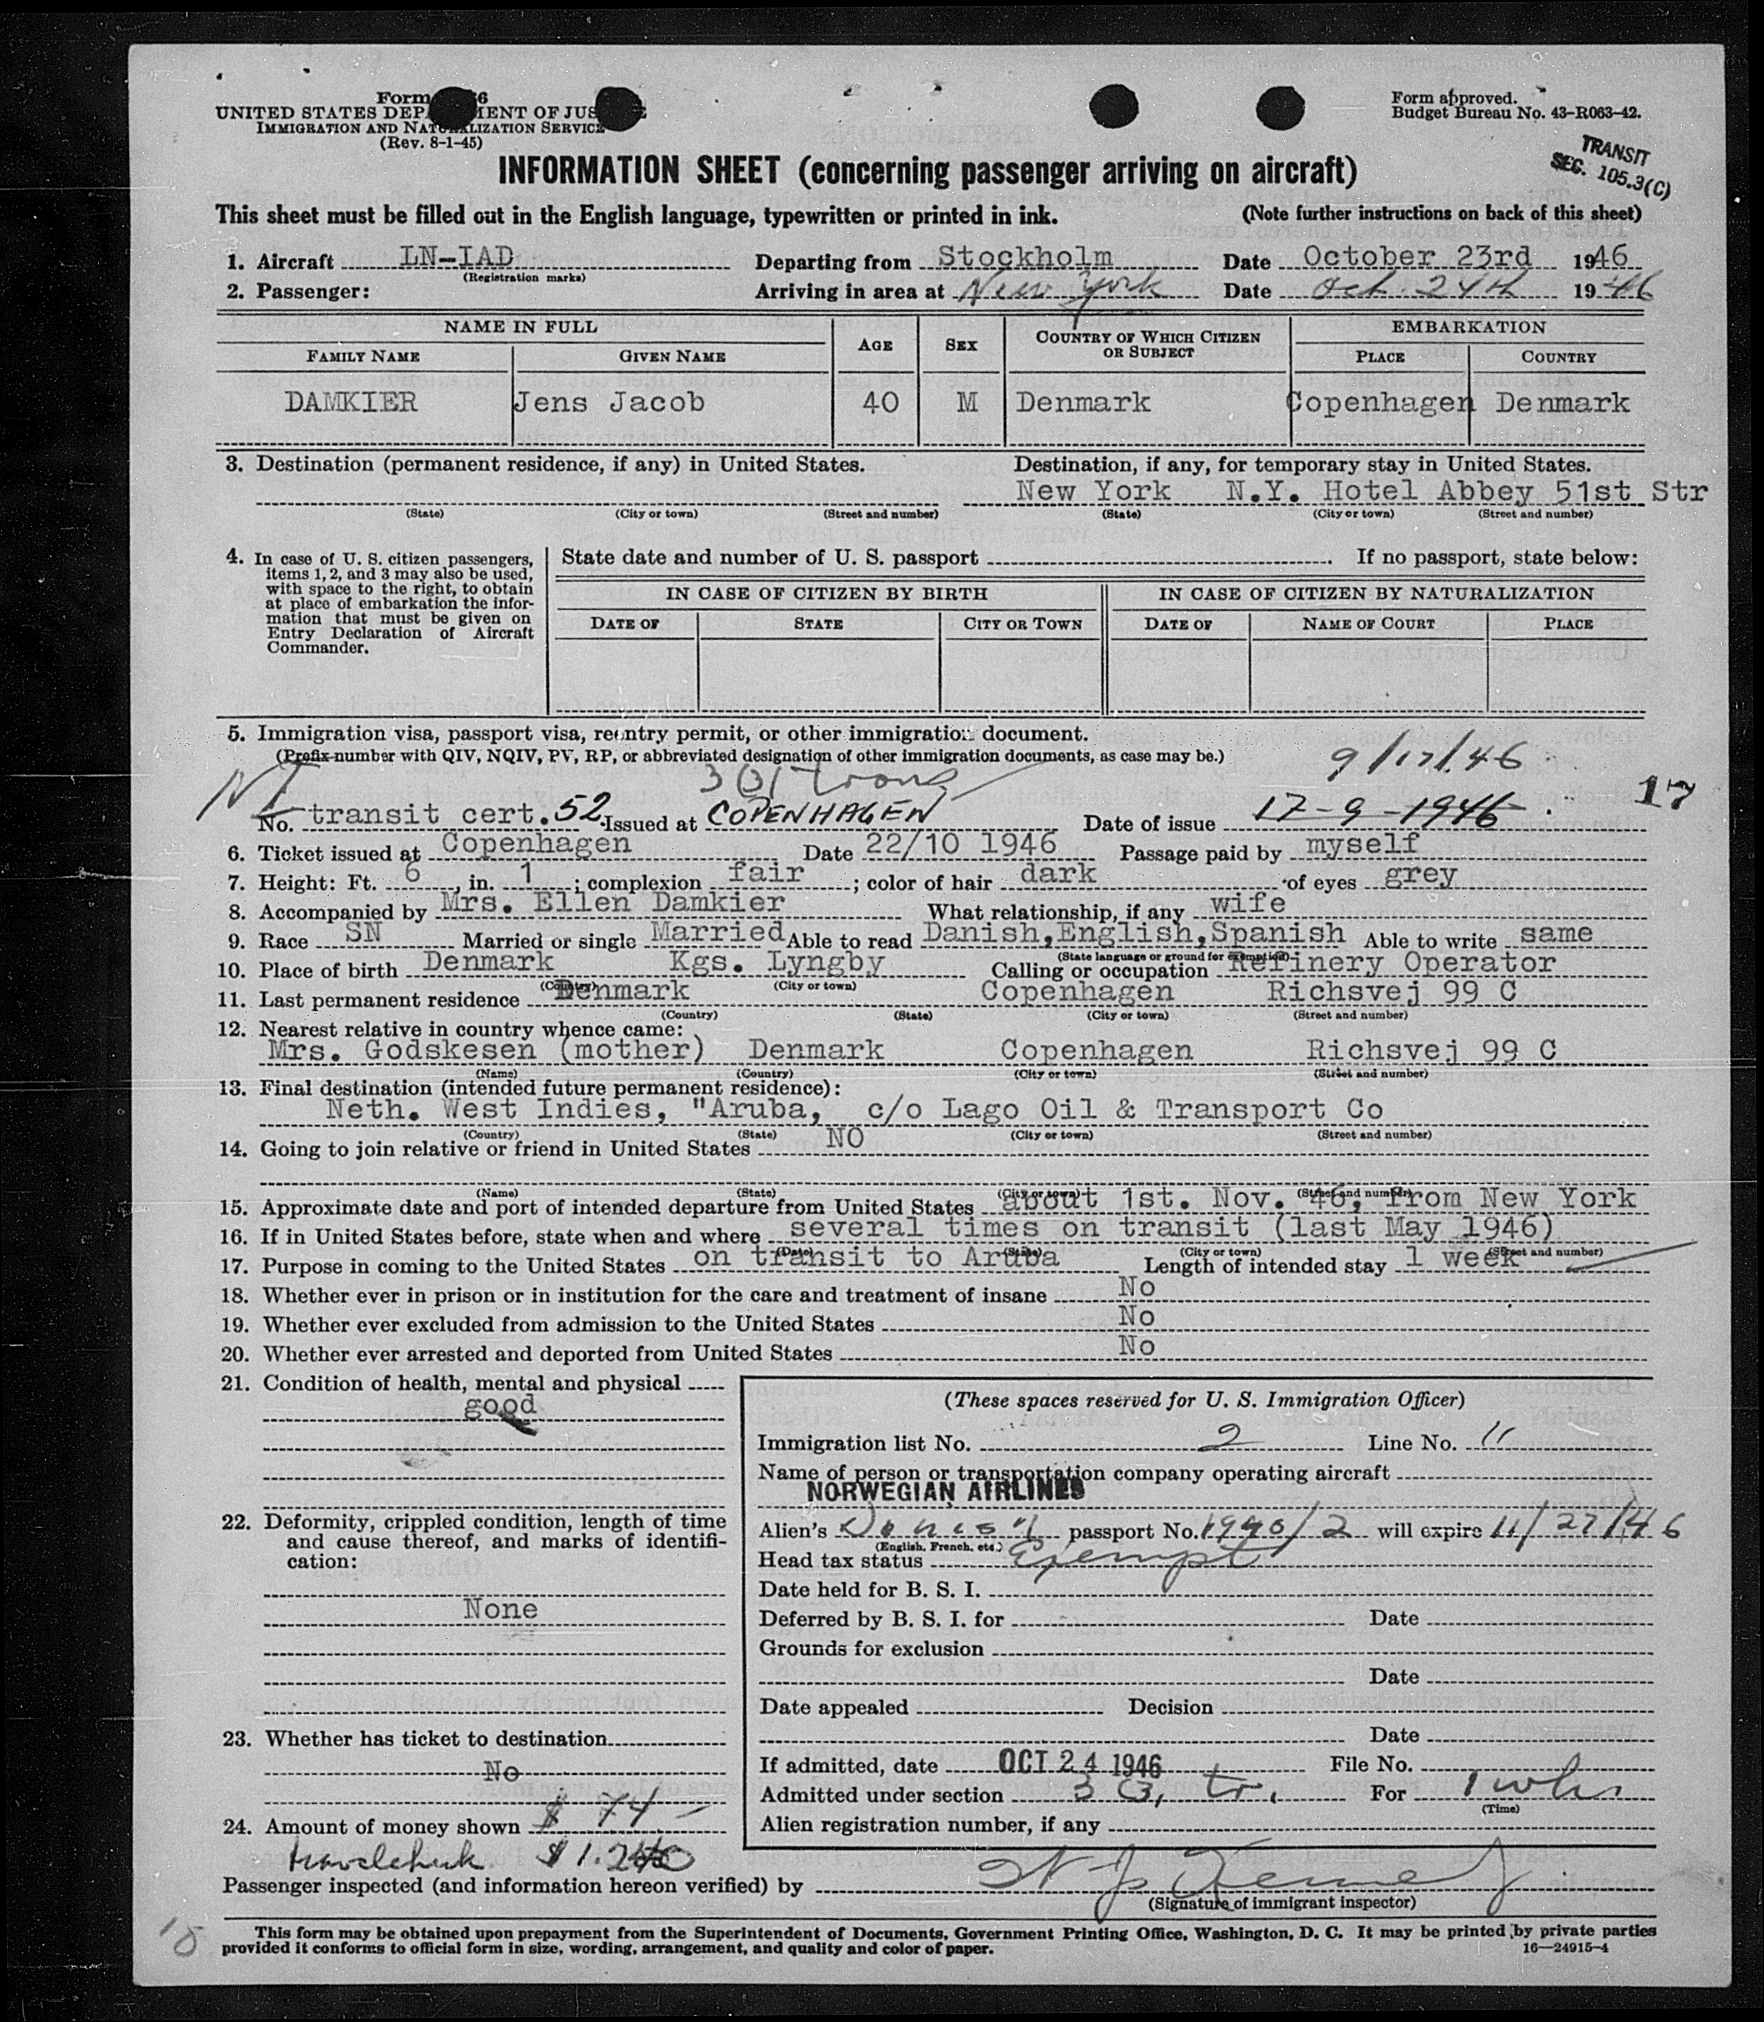 Form 6
Form approved.
UNITED STATES DEP MENT OF JUS
Budget Bureau No. 43-R063-42.
IMMIGRATION AND NATURALIZATION SERVICE
(Rev. 8-1-45)
TRANSIT
SEC. 105.3(C)
INFORMATION SHEET (concerning passenger arriving on aircraft)
This sheet must be filled out in the English language, typewritten or printed in ink. (Note further instructions on back of this sheet)
1. Aircraft LN-IAD Departing from Stockholm Date October 23rd 1946
(Registration marks)
2. Passenger: Arriving in area at New York Date Oct. 24th 1946
NAME IN FULL AGE SEX COUNTRY OF WHICH CITIZEN OR SUBJECT EMBARKATION
FAMILY NAME GIVEN NAME PLACE COUNTRY
DAMKIER Jens Jacob 40 M Denmark Copenhagen Denmark
3. Destination (permanent residence, if any) in United States. Destination, if any, for temporary stay in United States.
New York N.Y. Hotel Abbey 51st Str
(State) (City or town) (Street and number) (State) (City or town) (Street and number)
4. In case of U. S. citizen passengers, items 1, 2, and 3 may also be used, with space to the right, to obtain at place of embarkation the information that must be given on Entry Declaration of Aircraft Commander.
State date and number of U. S. passport If no passport, state below:
IN CASE OF CITIZEN BY BIRTH IN CASE OF CITIZEN BY NATURALIZATION
DATE OF STATE CITY OR TOWN DATE OF NAME OF COURT PLACE
5. Immigration visa, passport visa, reentry permit, or other immigration document.
(Prefix number with QIV, NQIV, PV, RP, or abbreviated designation of other immigration documents, as case may be.)
9/17/46
17
No. transit cert. 52 Issued at COPENHAGEN Date of issue 17-9-1946
6. Ticket issued at Copenhagen Date 22/10 1946 Passage paid by myself
7. Height: Ft. 6, in. 1; complexion fair; color of hair dark of eyes grey
8. Accompanied by Mrs. Ellen Damkier What relationship, if any wife
9. Race SN Married or single Married Able to read Danish, English, Spanish Able to write same
(State language or ground for exemption)
10. Place of birth Denmark Kgs. Lyngby Calling or occupation Refinery Operator
(Country) (City or town)
11. Last permanent residence Denmark Copenhagen Richsvej 99 C
(Country) (State) (City or town) (Street and number)
12. Nearest relative in country whence came:
Mrs. Godskesen (mother) Denmark Copenhagen Richsvej 99 C
(Name) (Country) (City or town) (Street and number)
13. Final destination (intended future permanent residence):
Neth. West Indies, "Aruba, c/o Lago Oil & Transport Co
(Country) (State) (City or town) (Street and number)
14. Going to join relative or friend in United States NO
(Name) (State) (City or town) (Street and number)
15. Approximate date and port of intended departure from United States about 1st. Nov. 46, from New York
16. If in United States before, state when and where several times on transit (last May 1946)
(Date) (State) (City or town) (Street and number)
17. Purpose in coming to the United States on transit to Aruba Length of intended stay 1 week
18. Whether ever in prison or in institution for the care and treatment of insane No
19. Whether ever excluded from admission to the United States No
20. Whether ever arrested and deported from United States No
21. Condition of health, mental and physical
good
22. Deformity, crippled condition, length of time and cause thereof, and marks of identification:
None
23. Whether has ticket to destination
No
24. Amount of money shown $ 74 -
(These spaces reserved for U. S. Immigration Officer)
Immigration list No. 2 Line No. 11
Name of person or transportation company operating aircraft
NORWEGIAN AIRLINES
Alien's Danish passport No. 1940/2 will expire 11/27/46
(English, French, etc.)
Head tax status Exempt
Date held for B. S. I.
Deferred by B. S. I. for Date
Grounds for exclusion
Date
Date appealed Decision
Date
If admitted, date OCT 24 1946 File No.
Admitted under section 3 (3, tr. For 1 wk
(Time)
Alien registration number, if any
Passenger inspected (and information hereon verified) by
(Signature of immigrant inspector)
This form may be obtained upon prepayment from the Superintendent of Documents, Government Printing Office, Washington, D. C. It may be printed by private parties
provided it conforms to official form in size, wording, arrangement, and quality and color of paper. 16—24915-4